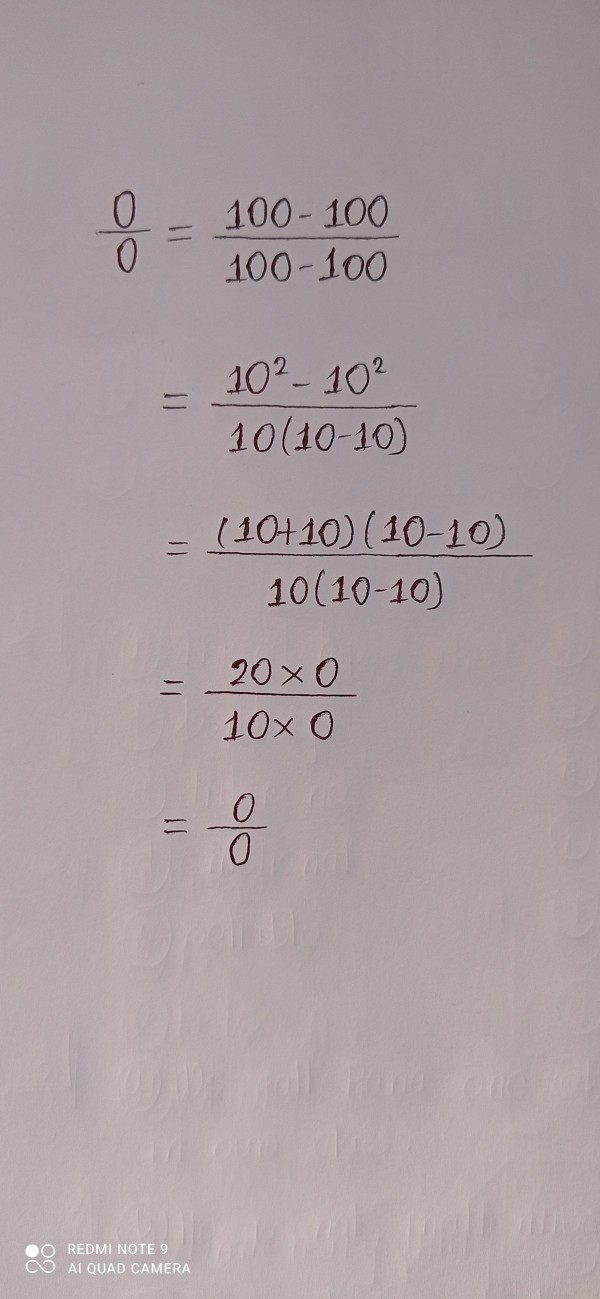 0/0 = (100 - 100)/(100 - 100)
= (10² - 10²)/(10(10-10))
= ((10+10)(10-10))/(10(10-10))
= (20 × 0)/(10 × 0)
= 0/0
REDMI NOTE 9
AI QUAD CAMERA